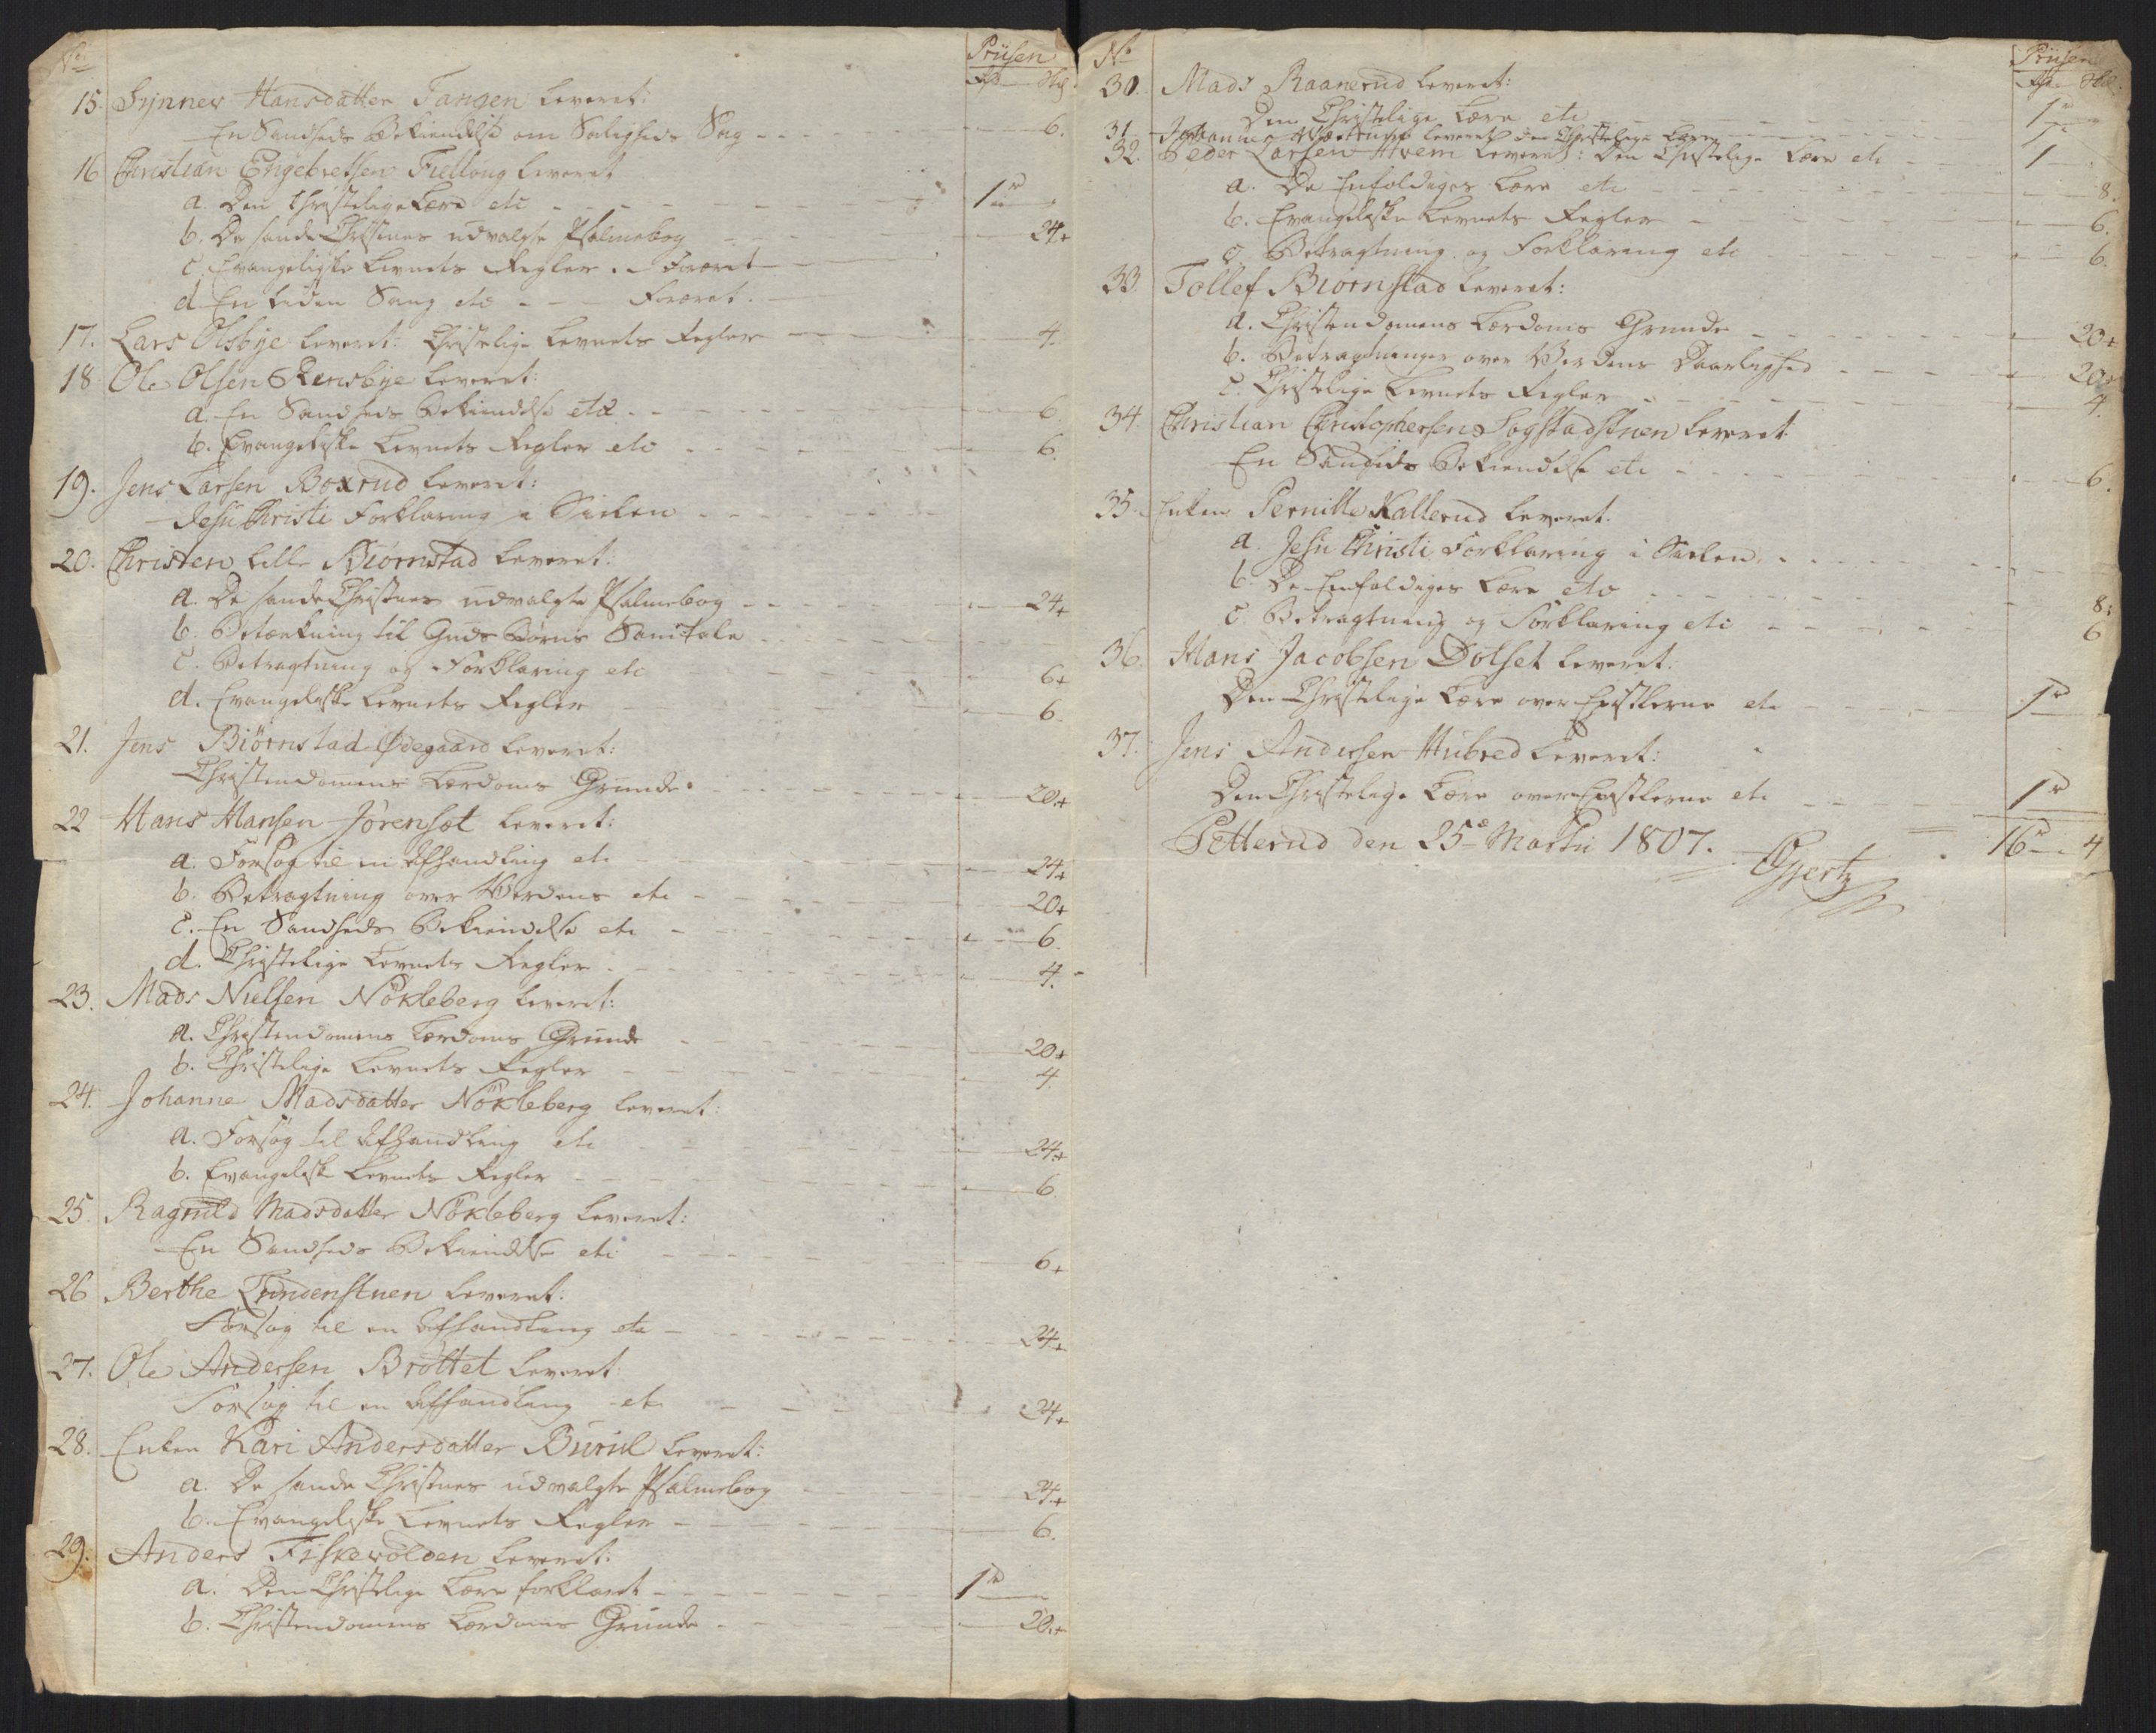 No
Priisen
Rd. ß
15. Synnev Hansdatter Tangen leveret:
En Sandheds Bekiendelse om Saligheds Sag 6.
16 Christian Engebretsen Fiellong leveret
a. Den Christelige Lære etc 1 rd
b. De sande Christnes udvalgte Psalmebog 24+
c. Evangeliske Levnets Regler .. Foræret
d En liden Sang etc Foræret.
17. Lars Olsbye leveret: Christelige Levnets Regler 4.
18. Ole Olsen Rensbye leveret:
a. En Sandheds Bekiendelse etc 6.
b. Evangeliske Levnets Regler etc 6.
19. Jens Larsen Boxrud leveret:
Jesu Christi Forklaring i Sielen
20. Christen lille Biørnstad leveret:
a. De sande Christnes udvalgte Psalmebog 24+
b. Betænkning til Guds Børns Samtale
c. Betragtning og Forklaring etc 6+
d. Evangeliske Levnets Regler 6.
21. Jens Biörnstad-Ødegaard leveret:
Christendomens Lærdoms Grunde. 20+
22 Hans Hansen Jörenset leveret:
a. Forsøg til en Afhandling etc 24+
b. Betragtning over Verdens etc 20+
c. En Sandheds Bekiendelse etc 6.
d. Christelige Levnets Regler 4.
23. Mads Nielsen Nökleberg leveret:
a. Christendomens Lærdoms Grunde 20+
b. Christelige Levnets Regler 4.
24. Johanne Madsdatter Nökleberg leveret:
a. Forsøg til Afhandling etc 24+
b. Evangeliske Levnets Regler 6.
25. Ragnild Madsdatter Nökleberg leveret:
En Sandheds Bekiendelse etc 6+
26 Berthe Lundenstuen leveret:
Forsøg til en Afhandling etc 24+
27. Ole Andersen Bröttet leveret:
Forsøg til en Afhandling etc 24+
28. Enken Kari Andersdatter Buriil leveret:
a. De sande Christnes udvalgte Psalmebog 24+
b. Evangeliske Levnets Regler 6.
29. Anders Fiskevolden leveret:
a. Den Christelige Lære forklaret 1 rd
b. Christendomens Lærdoms Grunde 20+
No
Priisen
Rd. ß
30. Mads Raanerud leveret:
Den Christelige Lære etc 1 rd
31 leveret den Christelige Lære 1 rd
32. Peder Larsen Hvem leveret: Den Christelige Lære etc 1
a. De Enfoldiges Lære etc 8.
b. Evangeliske Levnets Regler 6.
c. Betragtning og Forklaring etc 6.
33. Tollef Biørnstad leveret:
a. Christendomens Lærdoms Grunde 20+
b. Betragtninger over Verdens Daarlighed 20+
c. Christelige Levnets Regler 4.
34. Christian Christophersen Sogstadstuen leveret
En Sandheds Bekiendelse etc 6.
35. Enken Pernille Kallerud leveret.
a. Jesu Christi Forklaring i Sielen
b. De Enfoldiges Lære etc 8.
c. Betragtning og Forklaring etc 6
36. Hans Jacobsen Dölset leveret.
Den Christelige Lære over Epistlerne etc 1 rd
37. Jens Andersen Hubred leveret:
Den Christelige Lære over Epistlerne etc 1 rd
Petterud den 25de Martii 1807. 16 rd 4
Gjertz